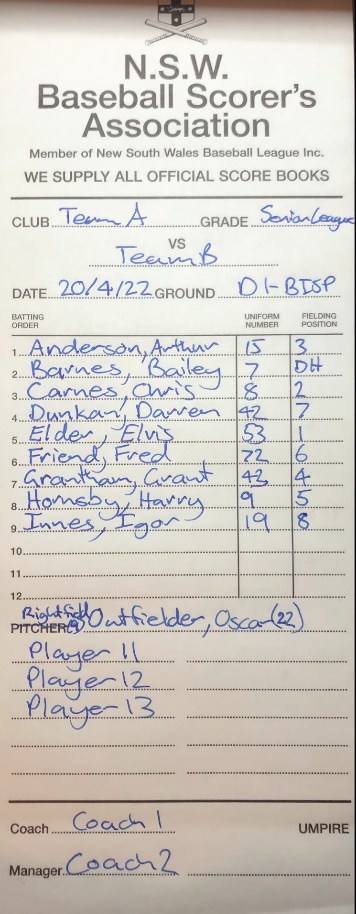 N.S.W.
Baseball Scorer's
Association
Member of New South Wales Baseball League Inc.
WE SUPPLY ALL OFFICIAL SCORE BOOKS
CLUB Team A GRADE Senior League
VS
Team B
DATE 20/4/22 GROUND D1-BISP
BATTING ORDER UNIFORM NUMBER FIELDING POSITION
1 Anderson, Arthur 15 3
2 Barnes, Bailey 7 DH
3 Carnes, Chris 8 2
4 Dunkan, Darren 42 7
5 Elder, Elvis 53 1
6 Friend, Fred 72 6
7 Grantham, Grant 42 4
8 Hornsby, Harry 9 5
9 Innes, Igor 19 8
10
11
12
Rightfield
PITCHER (9) Outfielder, Oscar (22)
Player 11
Player 12
Player 13
Coach Coach 1 UMPIRE
Manager Coach 2